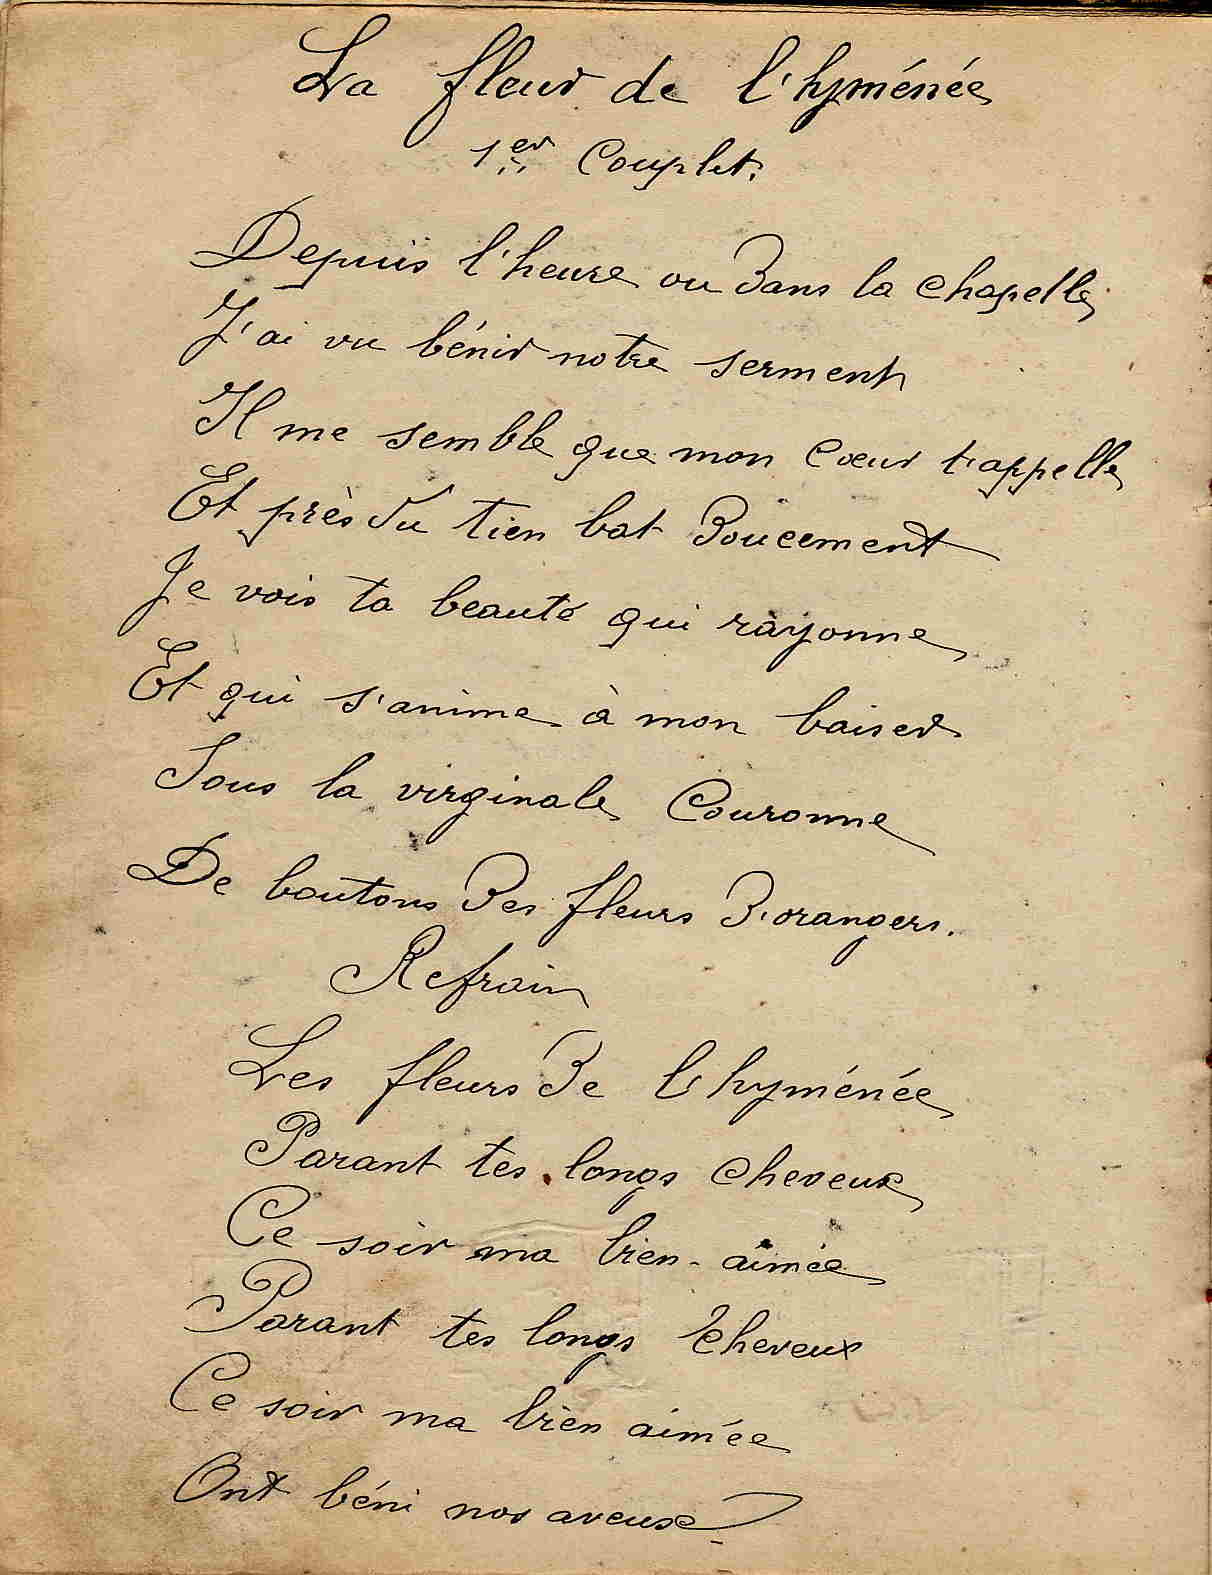 La fleur de l'hyménée
1er Couplet.
Depuis l'heure ou dans la chapelle
J'ai vu bénir notre serment
Il me semble que mon cœur t'appelle
Et près du tien bat doucement
Je vois ta beauté qui rayonne
Et qui s'anime à mon baiser
Sous la virginale Couronne
De boutons des fleurs d'orangers.
Refrain
Les fleurs de l'hyménée
Parant tes longs cheveux
Ce soir ma bien-aimée
Parant tes longs cheveux
Ce soir ma bien aimée
Ont béni nos aveux